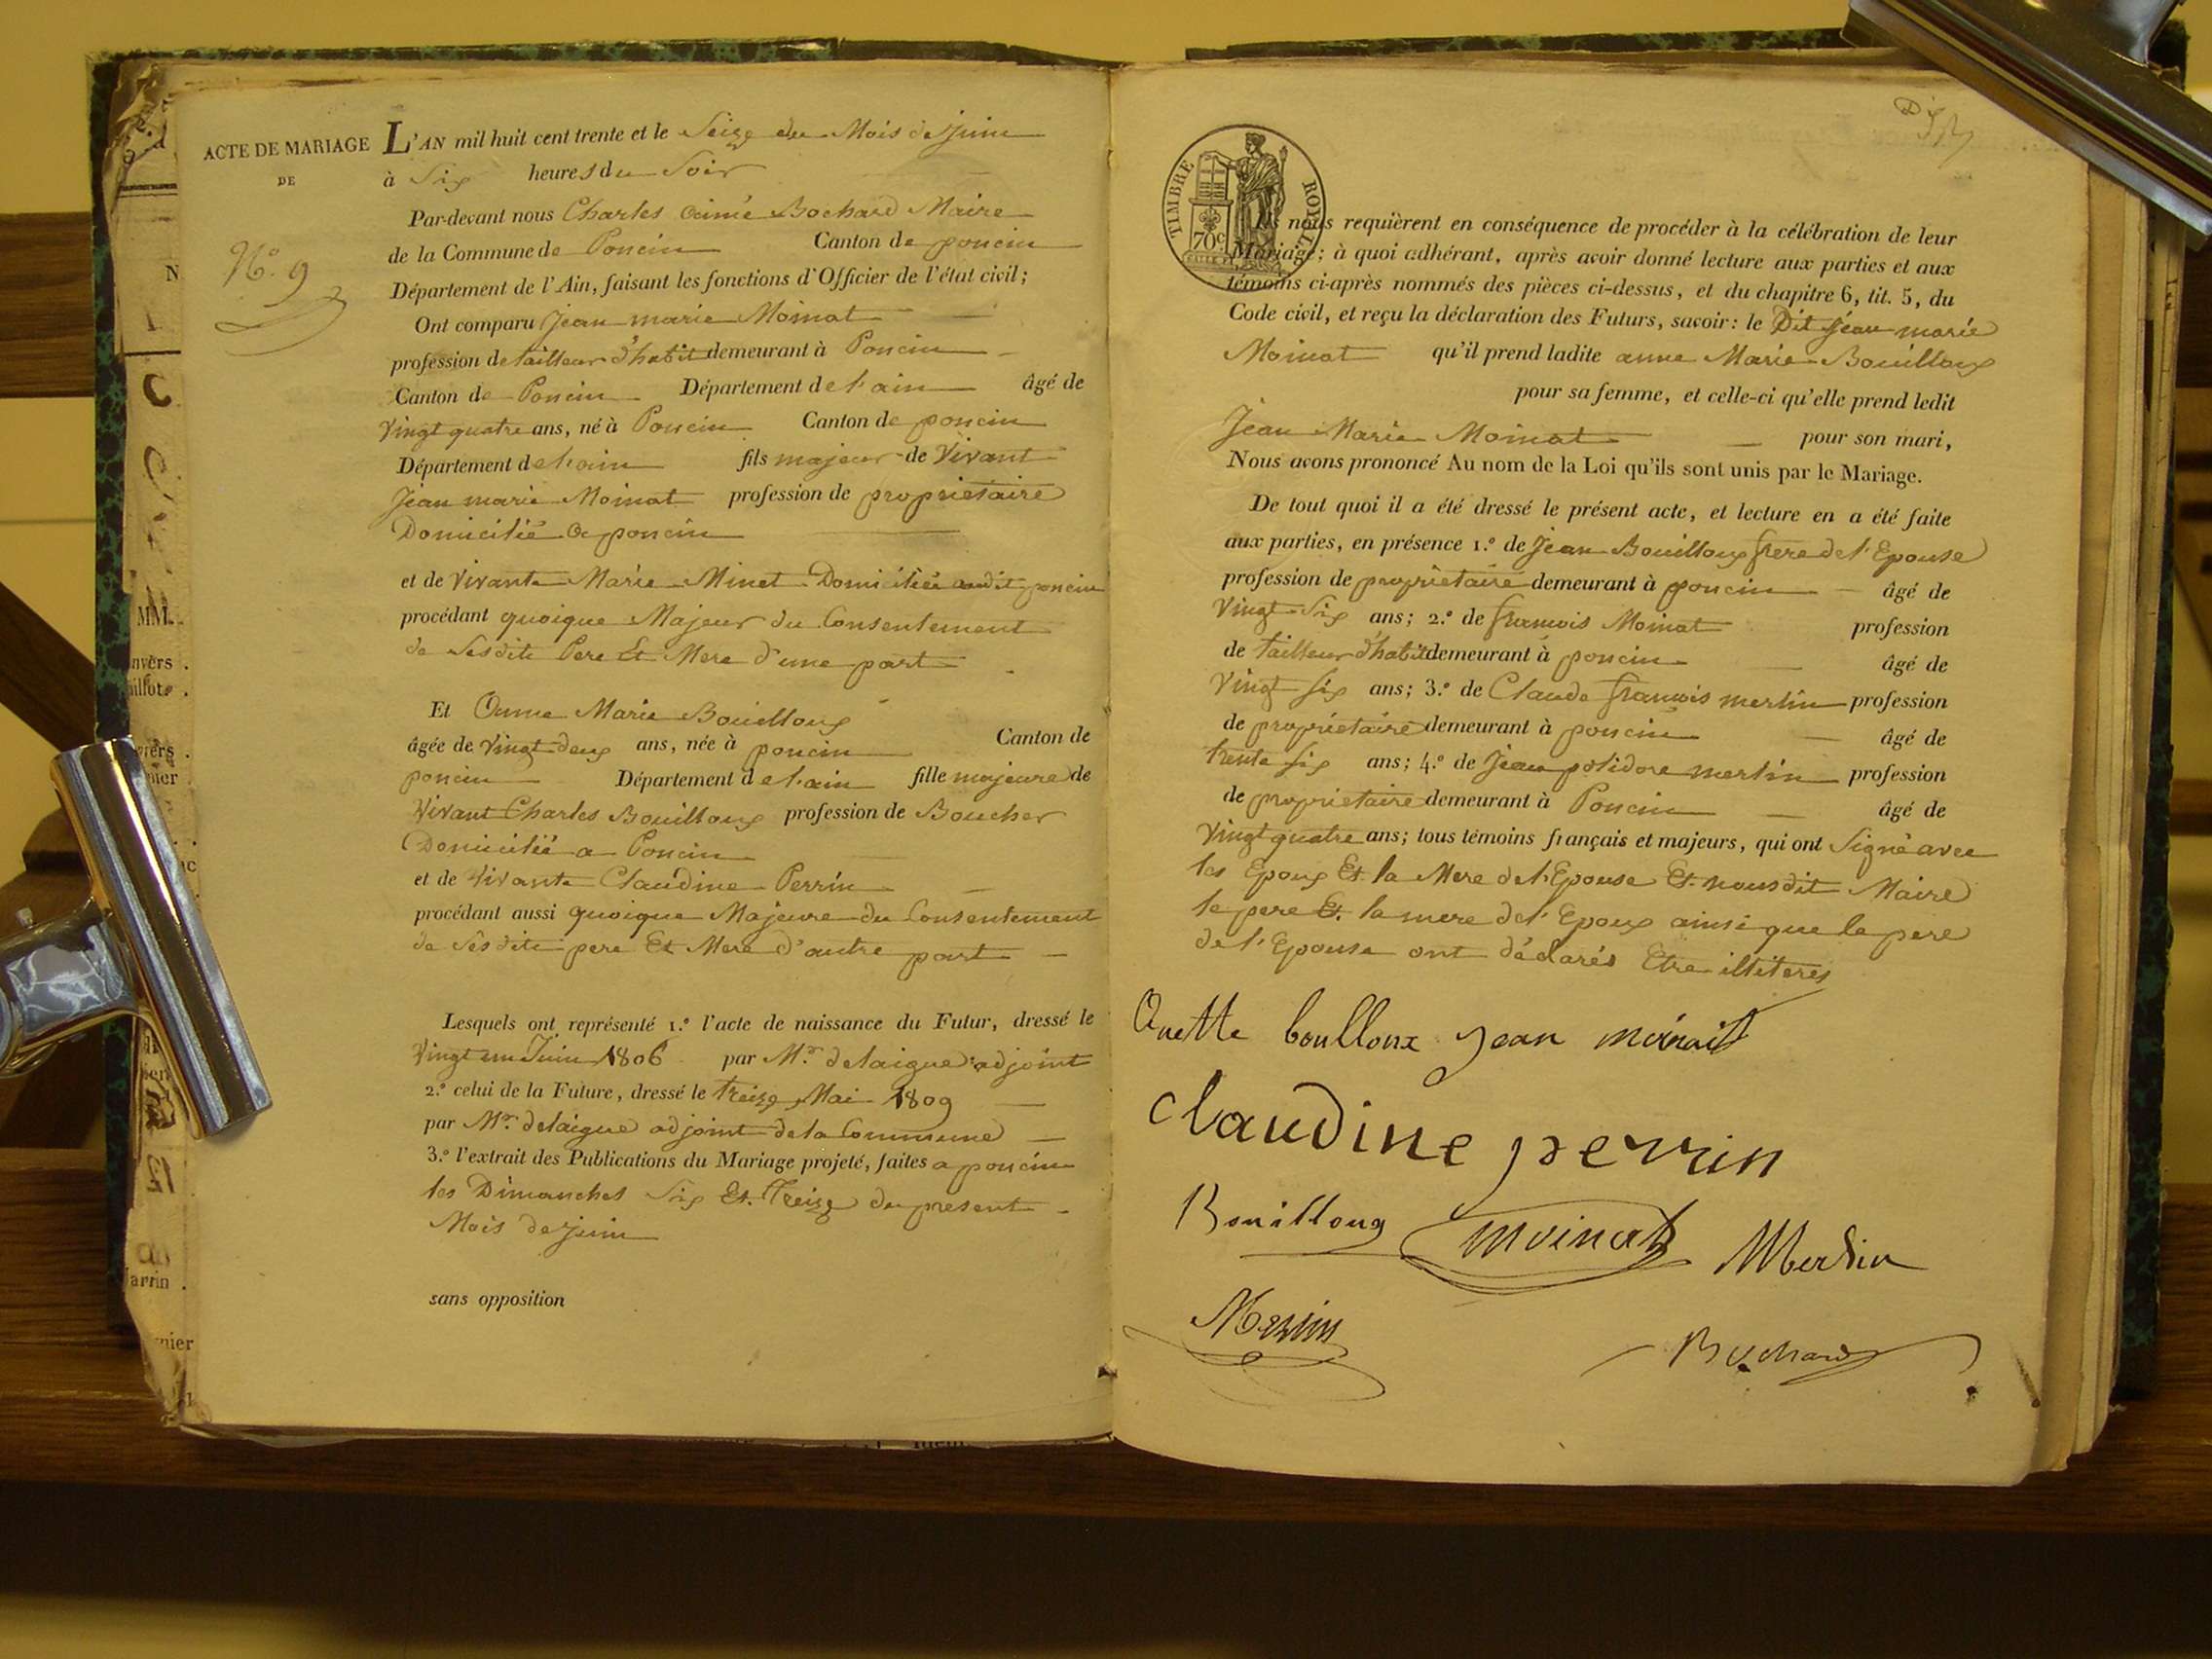 ACTE DE MARIAGE
DE
N.º 9
L'AN mil huit cent trente et le Seize du Mois de juin
à Six heures du Soir
Par-devant nous Charles aimé Bochard Maire
de la Commune de Poncin Canton de poncin
Département de l'Ain, faisant les fonctions d'Officier de l'état civil;
Ont comparu Jean marie Moinat
profession de tailleur d'habit demeurant à Poncin
Canton de Poncin Département de l'ain âgé de
Vingt quatre ans, né à Poncin Canton de poncin
Département de l'ain fils majeur de Vivant
Jean marie Moinat profession de propriétaire
Domicilié a poncin
et de Vivante Marie Minet Domiciliée audit poncin
procédant quoique Majeur du Consentement
de Sesdits Pere Et Mere d'une part
Et Anne Marie Bouilloux
âgée de Vingt deux ans, née à poncin Canton de
poncin Département de l'ain fille majeure de
Vivant Charles Bouilloux profession de Boucher
Domicilié a Poncin
et de Vivante Claudine Perrin
procédant aussi quoique Majeure du Consentement
de Sesdits pere Et Mere d'autre part
Lesquels ont représenté 1.º l'acte de naissance du Futur, dressé le
Vingt un Juin 1806 par M.r delaigue adjoint
2.º celui de la Future, dressé le treize Mai 1809
par M.r delaigue adjoint de la Commune
3.º l'extrait des Publications du Mariage projeté, faites a poncin
les Dimanches Six Et Treize du present
Mois de juin
sans opposition
TIMBRE ROYAL
70c
Ils nous requièrent en conséquence de procéder à la célébration de leur
Mariage; à quoi adhérant, après avoir donné lecture aux parties et aux
témoins ci-après nommés des pièces ci-dessus, et du chapitre 6, tit. 5, du
Code civil, et reçu la déclaration des Futurs, savoir: le Dit Jean marie
Moinat qu'il prend ladite anne Marie Bouilloux
pour sa femme, et celle-ci qu'elle prend ledit
Jean Marie Moinat pour son mari,
Nous avons prononcé Au nom de la Loi qu'ils sont unis par le Mariage.
De tout quoi il a été dressé le présent acte, et lecture en a été faite
aux parties, en présence 1.º de Jean Bouilloux frere de l'Epouse
profession de propriétaire demeurant à poncin âgé de
Vingt Six ans; 2.º de françois Moinat profession
de tailleur d'habit demeurant à poncin âgé de
Vingt Six ans; 3.º de Claude françois merlin profession
de propriétaire demeurant à poncin âgé de
trente Six ans; 4.º de Jean polidore merlin profession
de propriétaire demeurant à Poncin âgé de
Vingt quatre ans; tous témoins français et majeurs, qui ont Signé avec
les Epoux Et la Mere de l'Epouse Et nousdit Maire
le pere Et la mere de l'Epoux ainsi que le pere
de l'Epouse ont déclarés Etre illiterés
Anette boulloux Jean moinait
Claudine perrin
Bouilloux Moinat Merlin
Merlin Bochard